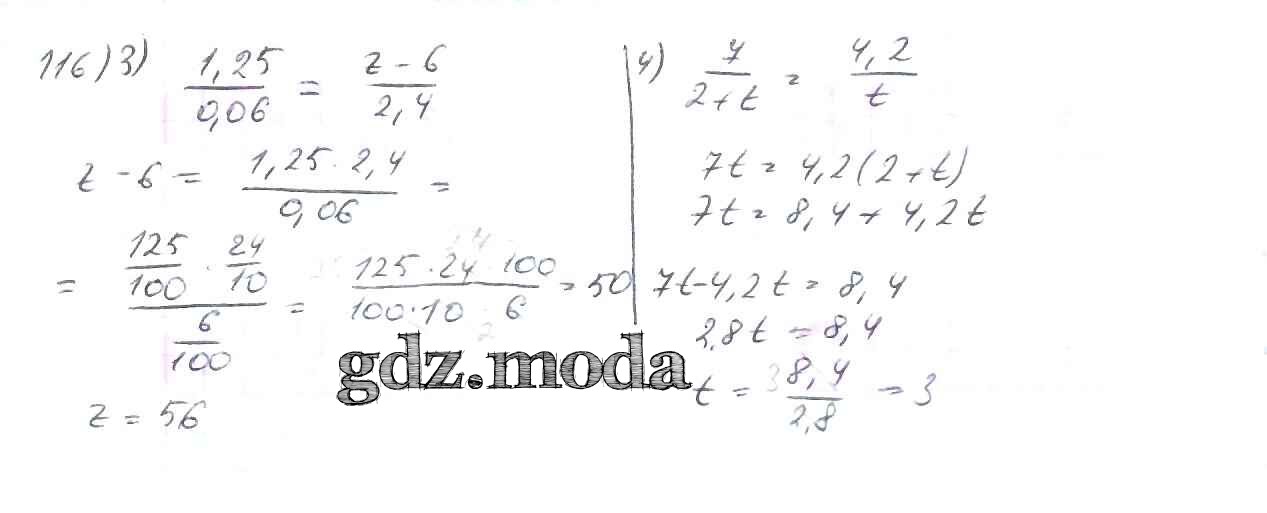 116) 3) 1,25/0,06 = z-6/2,4
z-6 = 1,25·2,4/0,06 =
= 125/100 · 24/10 / 6/100 = 125·24·100/100·10·6 = 50
z = 56
4) 7/2+t = 4,2/t
7t = 4,2(2+t)
7t = 8,4+4,2t
7t-4,2t = 8,4
2,8t = 8,4
t = 8,4/2,8 = 3
gdz.moda